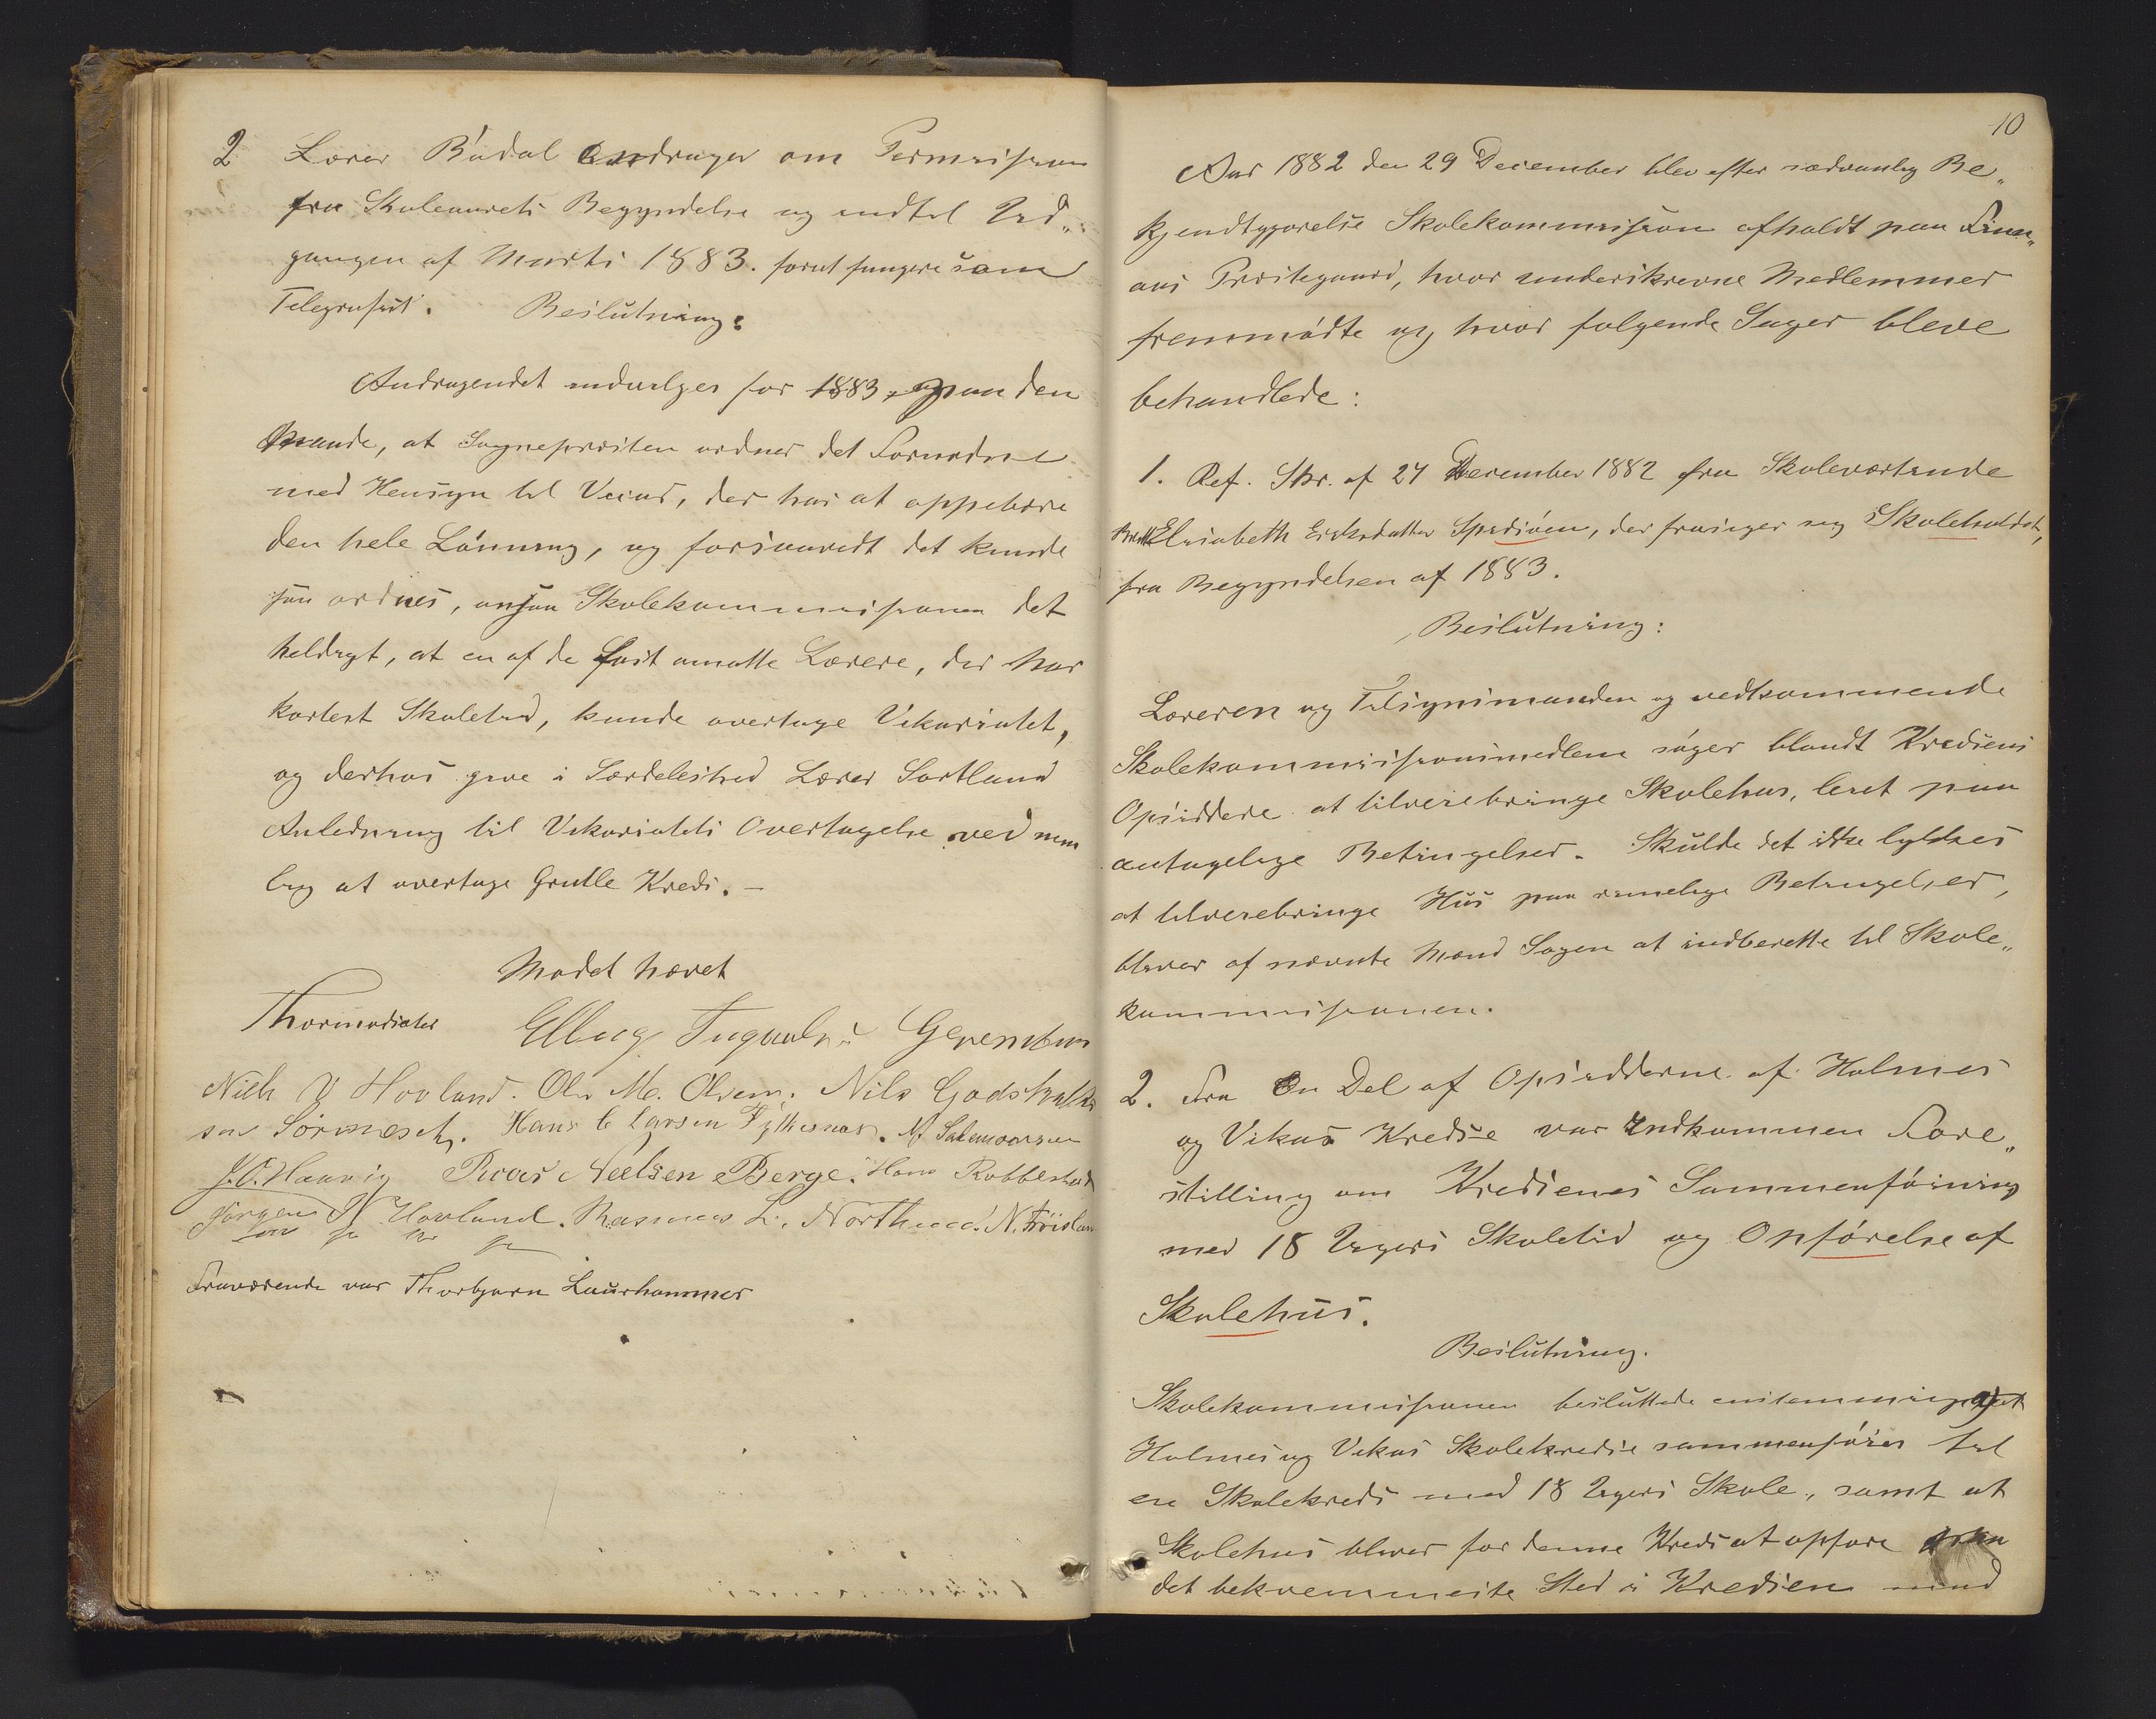 2 Lærer Bådal andrager om Permission
fra Skoleaarets Begyndelse og indtil Ud„
gangen af Marts 1883. forat fungere som
Telegrafist. Beslutning:
Andragendet indvilges for 1883, paa den
Maade, at Sognepresten ordner det Fornødne
med Hensyn til Vicar, der har at oppebære
den hele Lønning, og forsaavidt det kunde
saa ordnes, ansaa Skolekommissionen det
heldigt, at en af de fast ansatte Lærere, der har
kortest Skoletid, kunde overtage Vikariatet,
og derhos give i Særdeleshed Lærer Sortland
Anledning til Vikariatets Overtagelse ved nem
lig at overtage Grutle Kreds. –
Mødet hævet
Thormodsæter Elling Ingvalds Gjerentsen
Niels N Hovland. Ole M. Olsen. Nils Godskalk
sen Sörnæsch. Hans C Larsen Fylkesnæs. N Salemonsen
J. O. Haavig Roar Neelsen Berge. Hans Robberstad
Jörgen N Hovland. Rasmus L. Northun. N. Fröisland
Fraværende var Thorbjørn Laurhammer
10
Aar 1882 den 29 December blev efter sædvanlig Be„
kjendtgjørelse Skolekommission afholdt paa Finn„
aas Prestegaard, hvor underskrevne Medlemmer
fremmødte og hvor følgende Sager bleve
behandlede:
1. Ref. Skr. af 27 December 1882 fra Skoleværtinde
Elisabeth Eriksdatter Spidsøen, der frasiger sig Skoleholdet,
fra Begyndelsen af 1883.
Beslutning:
Læreren og Tilsynsmanden og vedkommende
Skolekommissionsmedlem søger blandt Kredsens
Opsiddere at tilveiebringe Skolehus, leiet paa
antagelige Betingelser. Skulde det ikke lykkes
at tilveiebringe Hus paa rimelige Betingelser,
bliver af nævnte Mænd Sagen at indberette til Skole„
kommissionen.
2. Fra En Del af Opsidderne af Holmes
og Vikas Kredse var Indkommen Fore„
stilling om Kredsenes Sammenføining
med 18 Ugers Skoletid og Opførelse af
Skolehus.
Beslutning.
Skolekommissionen besluttede enstemmig at
Holmes og Vikas Skolekredse sammenføies til
en Skolekreds med 18 Ugers Skole, samt at
Skolehus bliver for denne Kreds at opføre
det bekvemmeste Sted i Kredsen mod